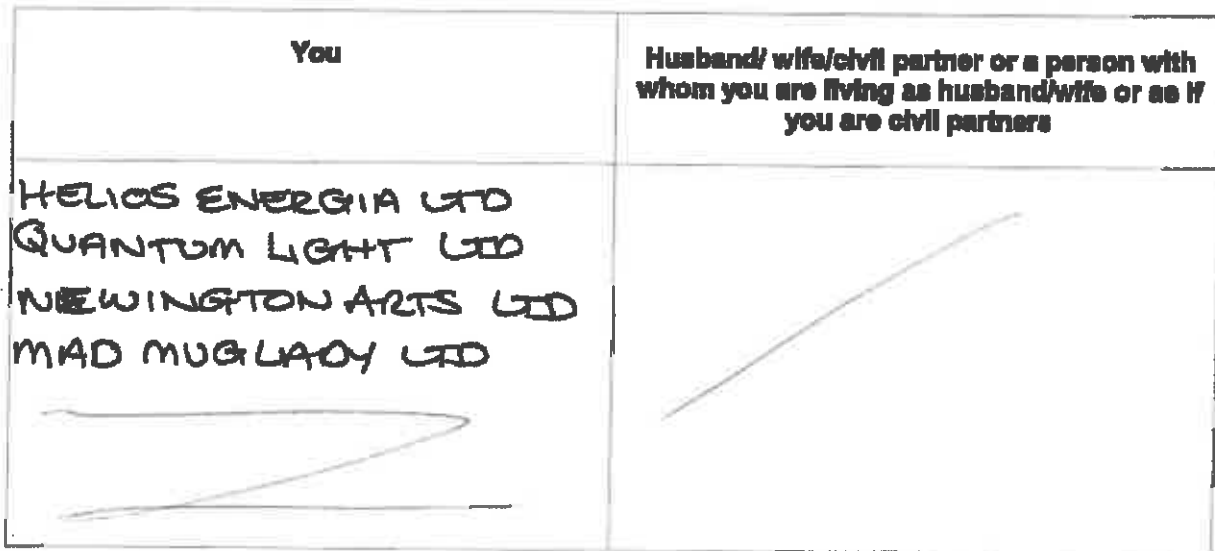 You
Husband/ wife/civil partner or a person with
whom you are living as husband/wife or as if
you are civil partners
HELIOS ENERGIA LTD
QUANTUM LIGHT LTD
NEWINGTON ARTS LTD
MAD MUGLADY LTD